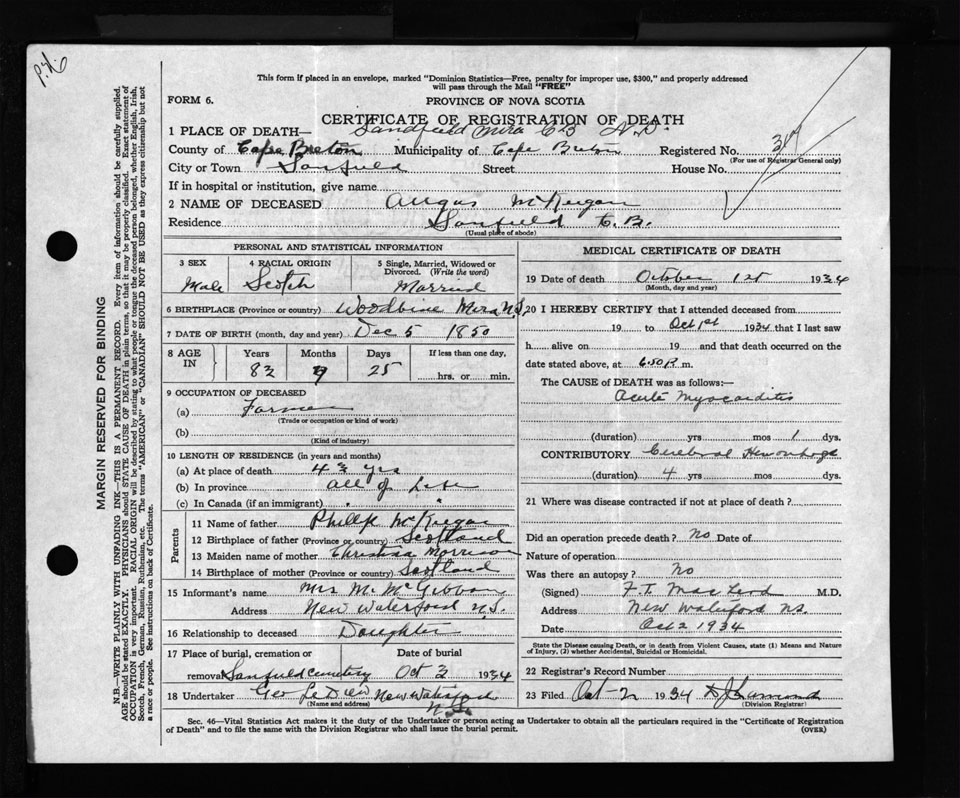 This form if placed in an envelope, marked "Dominion Statistics—Free, penalty for improper use, $300," and properly addressed
will pass through the Mail "FREE"
FORM 6.
PROVINCE OF NOVA SCOTIA
CERTIFICATE OF REGISTRATION OF DEATH
1 PLACE OF DEATH— Sandfield Mira C B N.S.
County of Cape Breton Municipality of Cape Breton Registered No. 317
(For use of Registrar General only)
City or Town Sanfield Street House No.
If in hospital or institution, give name
2 NAME OF DECEASED Angus McKeigan
Residence Sanfield C.B.
(Usual place of abode)
PERSONAL AND STATISTICAL INFORMATION
3 SEX Male
4 RACIAL ORIGIN Scotch
5 Single, Married, Widowed or Divorced. (Write the word) Married
6 BIRTHPLACE (Province or country) Woodbine Mira N.S.
7 DATE OF BIRTH (month, day and year) Dec 5 1850
8 AGE IN Years Months Days If less than one day,
83 9 25 hrs. or min.
9 OCCUPATION OF DECEASED
(a) Farmer
(Trade or occupation or kind of work)
(b)
(Kind of industry)
10 LENGTH OF RESIDENCE (in years and months)
(a) At place of death 43 yrs
(b) In province all of Life
(c) In Canada (if an immigrant) " "
Parents
11 Name of father Phillip McKeigan
12 Birthplace of father (Province or country) Scotland
13 Maiden name of mother Christina Morrison
14 Birthplace of mother (Province or country) Scotland
15 Informant's name Mrs M. McGibbon
Address New Waterford N.S.
16 Relationship to deceased Daughter
17 Place of burial, cremation or removal Sanfield cemetery Date of burial Oct 3 1934
18 Undertaker Geo LeDrew New Waterford N.S.
(Name and address)
MEDICAL CERTIFICATE OF DEATH
19 Date of death October 1st 1934
(Month, day and year)
20 I HEREBY CERTIFY that I attended deceased from
19 to Oct 1st 1934 that I last saw
h alive on 19 and that death occurred on the
date stated above, at 6.50 P. m.
The CAUSE of DEATH was as follows:—
Acute Myocarditis
(duration) yrs mos 1 dys.
CONTRIBUTORY Cerebral Hemorrhage
(duration) 4 yrs mos dys.
21 Where was disease contracted if not at place of death?
Did an operation precede death? No Date of
Nature of operation
Was there an autopsy? No
(Signed) F.T. MacLeod M.D.
Address New Waterford N.S.
Date Oct 2 1934
State the Disease causing Death, or in death from Violent Causes, state (1) Means and Nature of Injury, (2) whether Accidental, Suicidal or Homicidal.
22 Registrar's Record Number
23 Filed Oct-2 1934
(Division Registrar)
Sec. 46—Vital Statistics Act makes it the duty of the Undertaker or person acting as Undertaker to obtain all the particulars required in the "Certificate of Registration
of Death" and to file the same with the Division Registrar who shall issue the burial permit.
(OVER)
MARGIN RESERVED FOR BINDING
N.B.—WRITE PLAINLY, WITH UNFADING INK. THIS IS A PERMANENT RECORD. Every item of information should be carefully supplied.
AGE should be stated EXACTLY. PHYSICIANS should STATE CAUSE OF DEATH in plain terms, so that it may be properly classified. Exact statement of
OCCUPATION is very important. RACIAL ORIGIN will be described by stating to what people or tongue the deceased person belonged, whether English, Irish,
Scotch, French, German, Russian, Ruthenian, etc. The terms "AMERICAN" or "CANADIAN" SHOULD NOT BE USED as they express citizenship but not
a race or people. See instructions on back of Certificate.